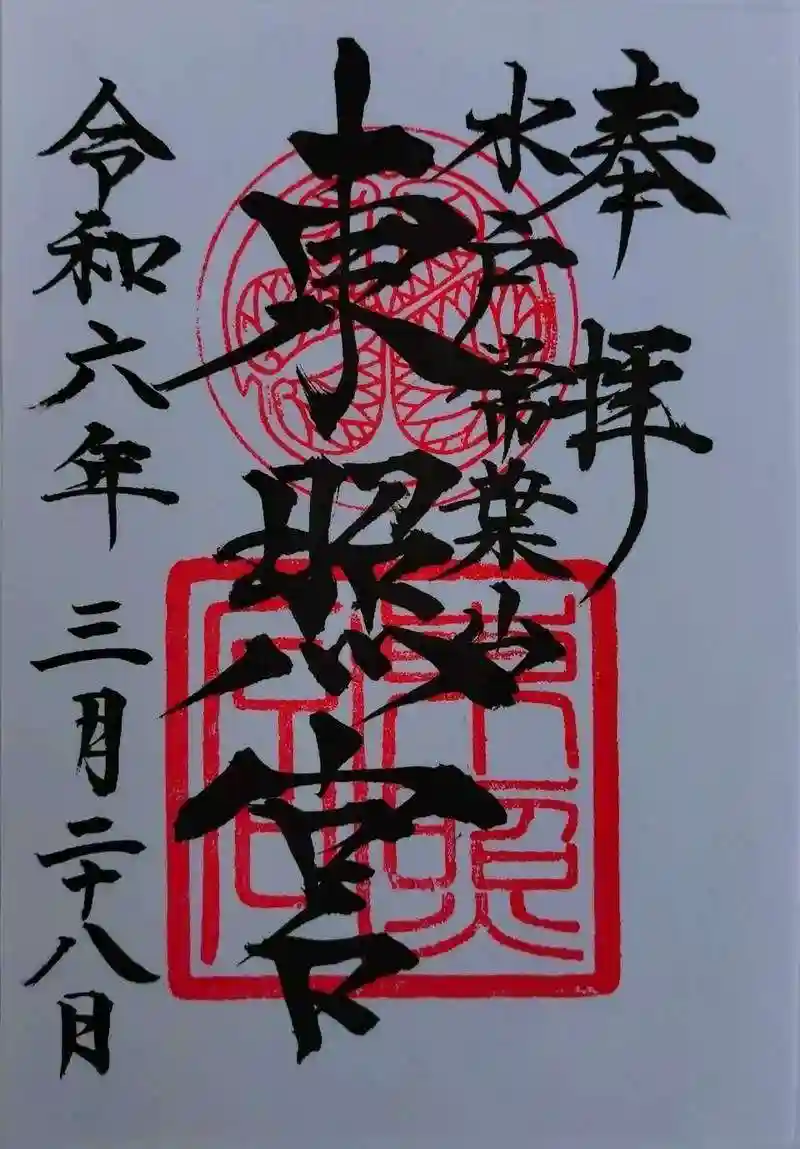 奉拝
水戸常葉山
東照宮
令和六年三月二十八日
東照宮